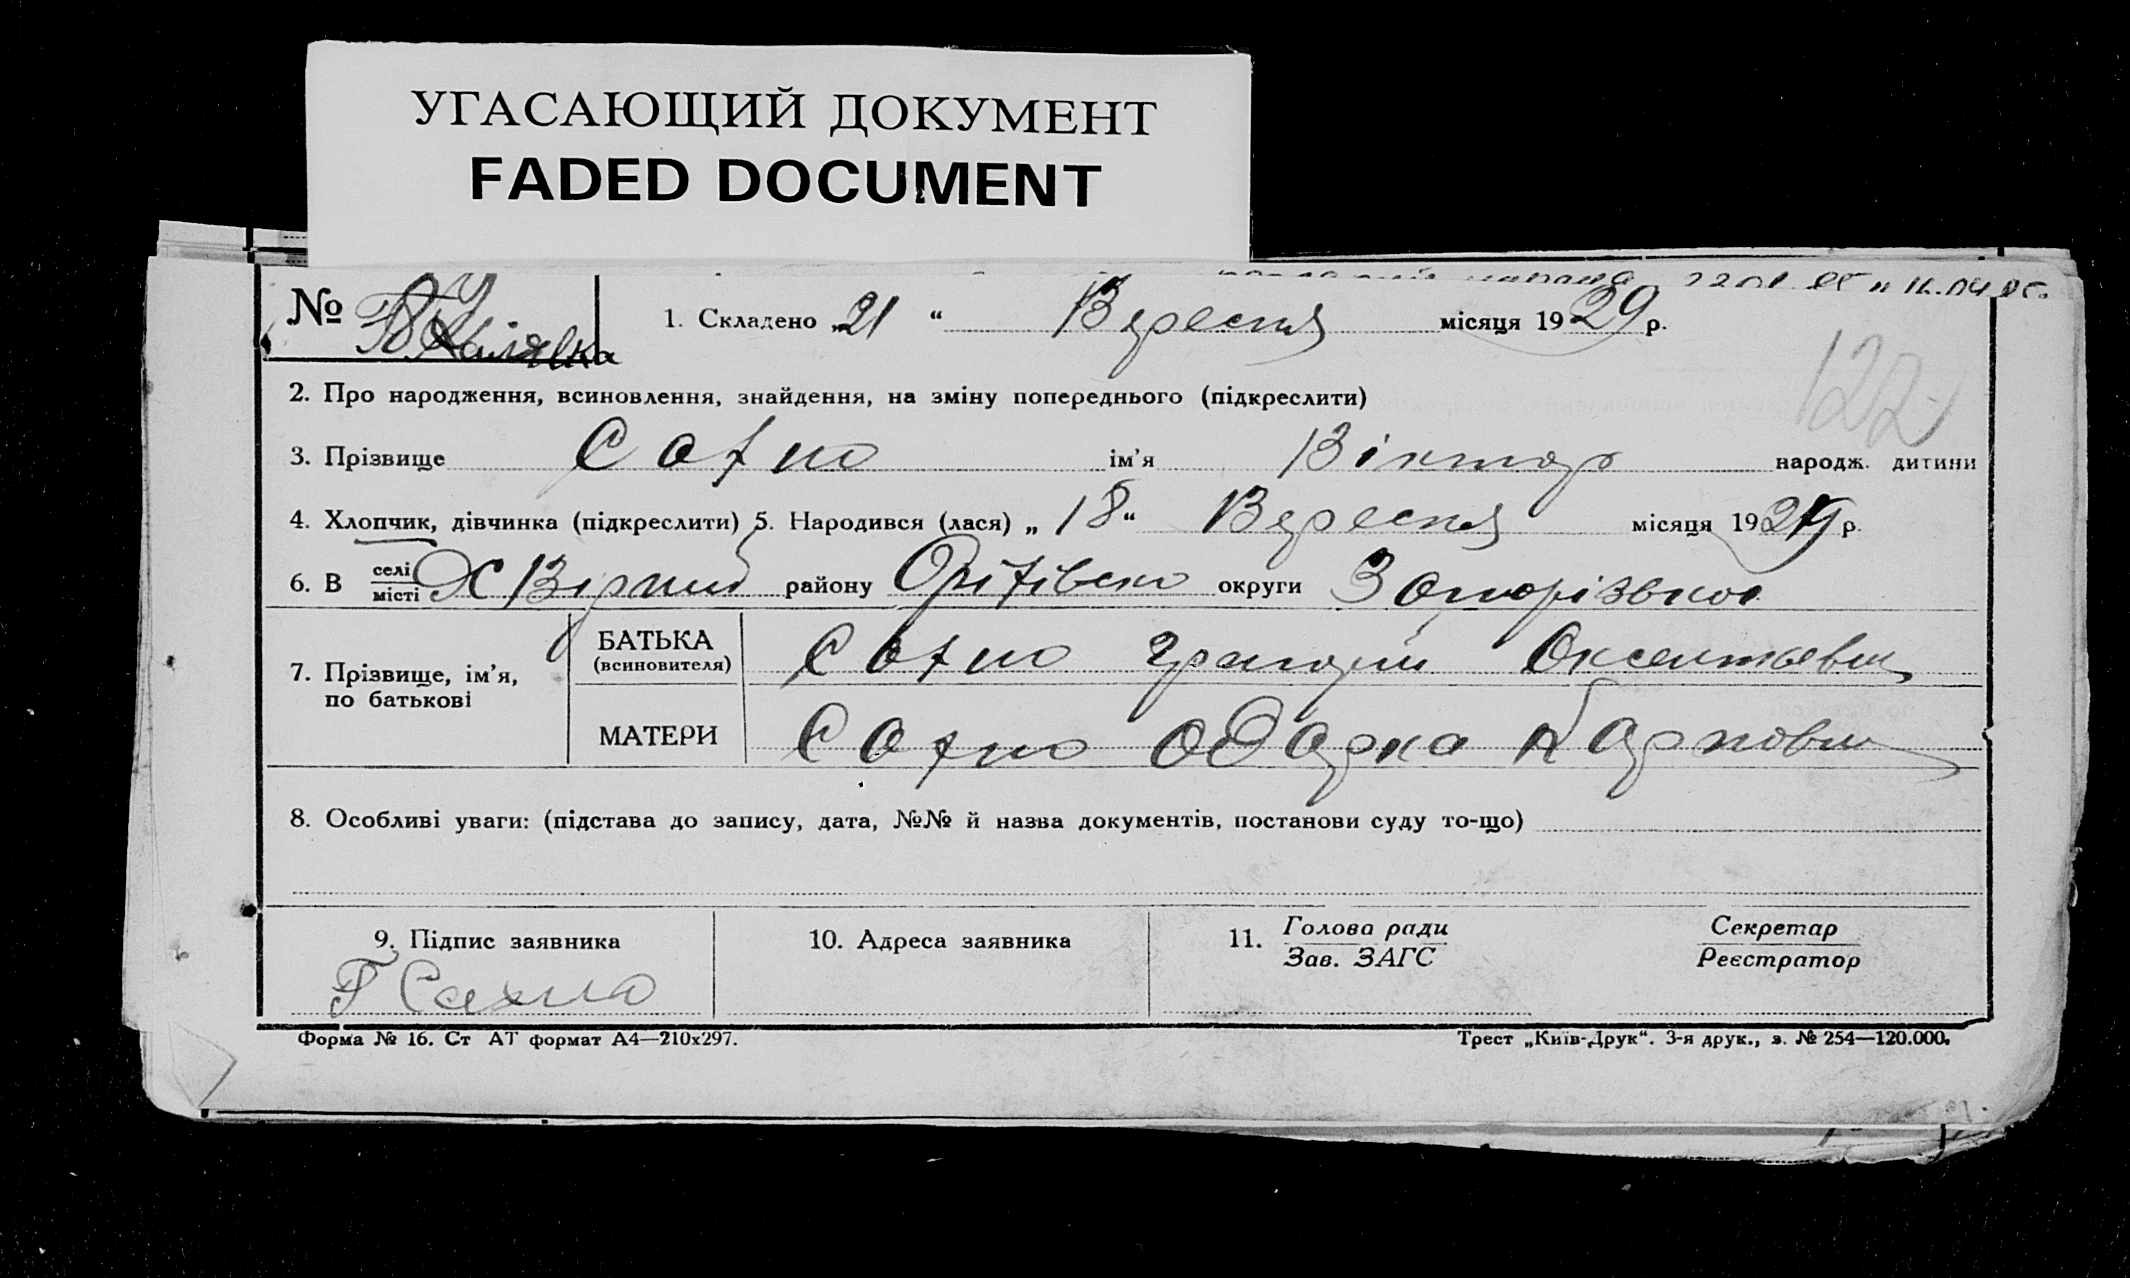 УГАСАЮЩИЙ ДОКУМЕНТ
FADED DOCUMENT
№
1. Складено „21“ Вересня місяця 1929 р.
122
2. Про народження, всиновлення, знайдення, на зміну попереднього (підкреслити)
3. Прізвище Сахно ім'я Віктор народж. дитини
4. Хлопчик, дівчинка (підкреслити) 5. Народився (лася) „18“ Вересня місяця 1929 р.
6. В селі/місті Х Вірний району Оріхівсько округи Запорізької
7. Прізвище, ім'я, по батькові
БАТЬКА (всиновителя) Сахно Григорій Оксентьевич
МАТЕРИ Сахно Одарка Карповна
8. Особливі уваги: (підстава до запису, дата, №№ й назва документів, постанови суду то-що)
9. Підпис заявника
10. Адреса заявника
11. Голова ради Секретар
Зав. ЗАГС Реєстратор
Г Сахно
Форма № 16. Ст АТ формат А4—210х297.
Трест „Київ-Друк“. 3-я друк., з. № 254—120.000.